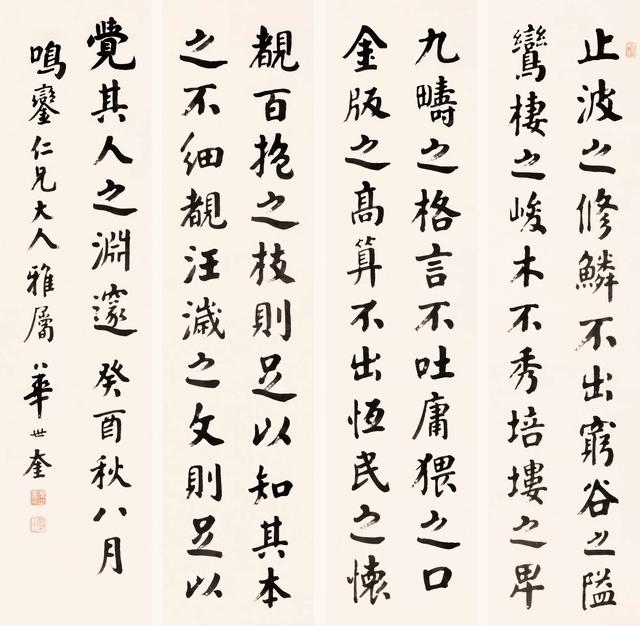 止波之修鱗不出窮谷之隘
鸞棲之峻木不秀培塿之卑
九疇之格言不吐庸猥之口
金版之高算不出恆民之懷
覩百抱之枝則足以知其本
之不細覩汪濊之文則足以
覺其人之淵邃癸酉秋八月
鳴鑾仁兄大人雅屬 華世奎